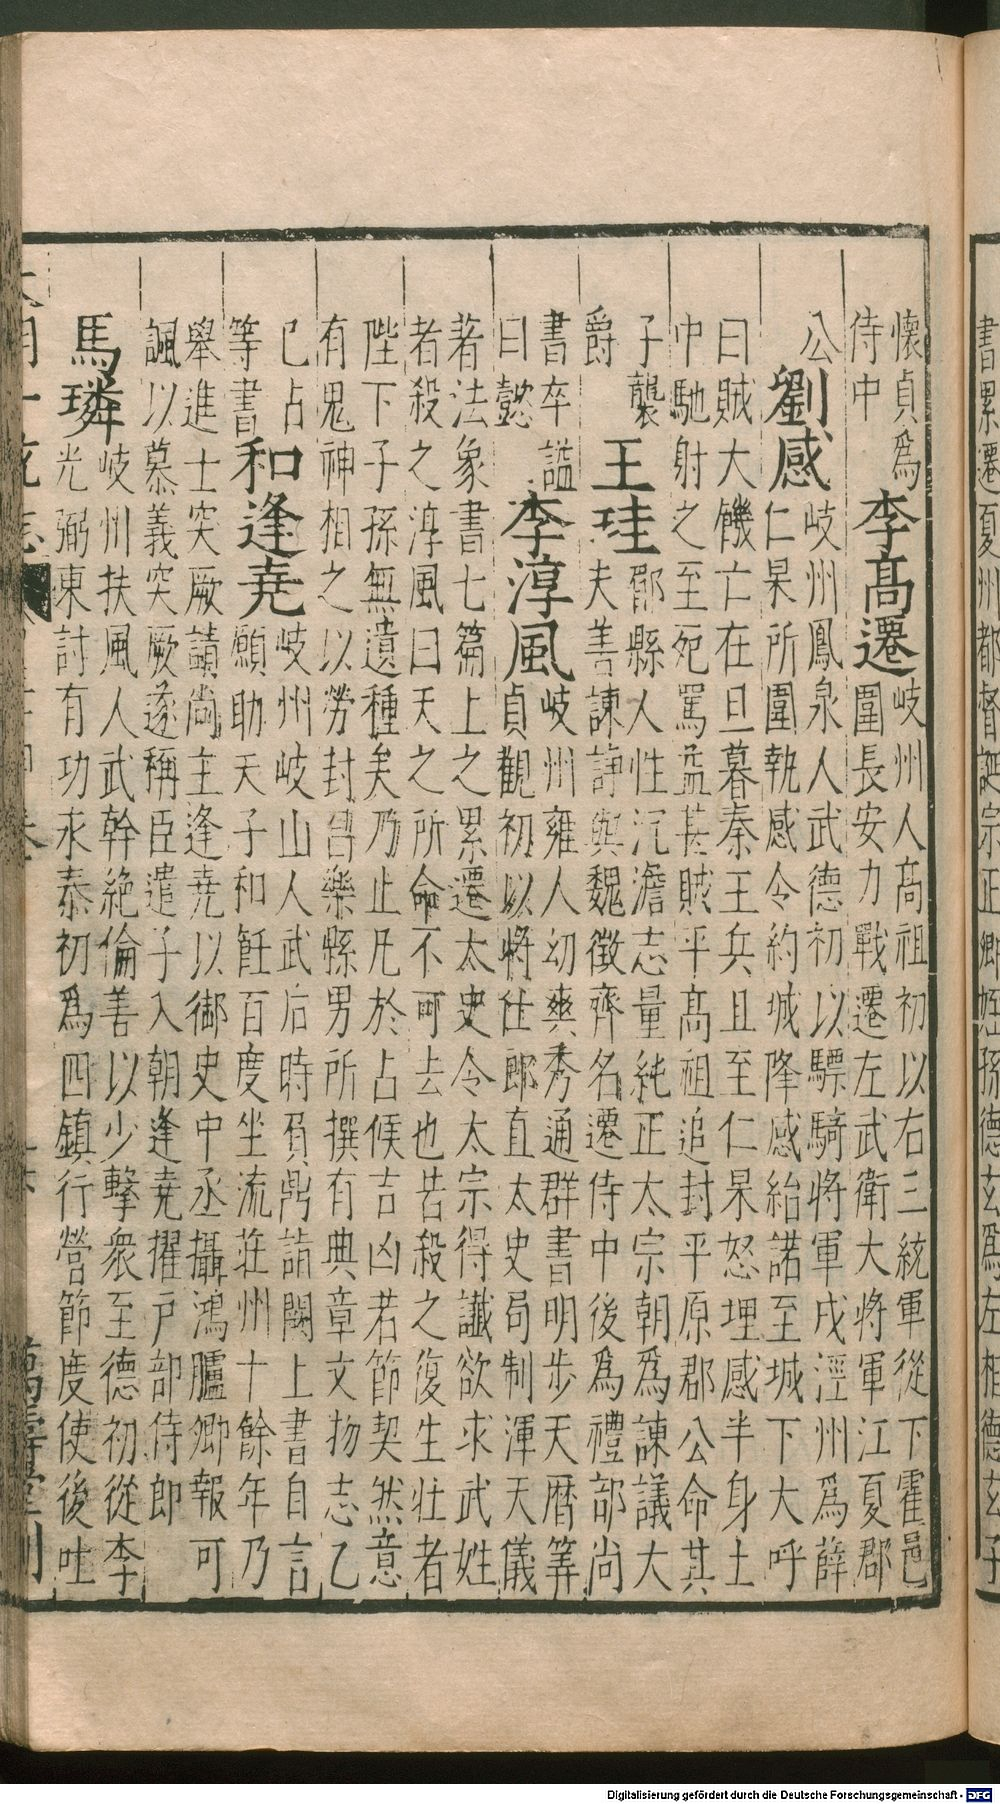 書累遷夏州都督誕宗正卿姪孫德玄爲左相德玄子
懷貞爲
侍中
李高遷
岐州人高祖初以右三統軍從下霍邑
圍長安力戰遷左武衛大將軍江夏郡
公
劉感
岐州鳳泉人武德初以驃騎將軍戍涇州爲薛
仁杲所圍執感令約城降感紿諾至城下大呼
曰賊大饑亡在旦暮秦王兵且至仁杲怒埋感半身土
中馳射之至死罵益甚賊平高祖追封平原郡公命其
子襲
爵
王珪
郿縣人性沉澹志量純正太宗朝爲諫議大
夫善諫諍與魏徵齊名遷侍中後爲禮部尚
書卒謚
曰懿
李淳風
岐州雍人幼爽秀通群書明步天曆筭
貞觀初以將仕郎直太史局制渾天儀
著法象書七篇上之累遷太史令太宗得讖欲求武姓
者殺之淳風曰天之所命不可去也若殺之復生壯者
陛下子孫無遺種矣乃止凡於占候吉凶若節契然意
有鬼神相之以勞封昌樂縣男所撰有典章文物志乙
已占
等書
和逢堯
岐州岐山人武后時負鼎詣闕上書自言
願助天子和飪百度坐流莊州十餘年乃
舉進士突厥請尚主逢堯以御史中丞攝鴻臚卿報可
諷以慕義突厥遂稱臣遣子入朝逢堯擢戶部侍郎
馬璘
岐州扶風人武幹絕倫善以少擊衆至德初從李
光弼東討有功永泰初爲四鎮行營節度使後吐
萬壽堂刊
Digitalisierung gefördert durch die Deutsche Forschungsgemeinschaft - DFG